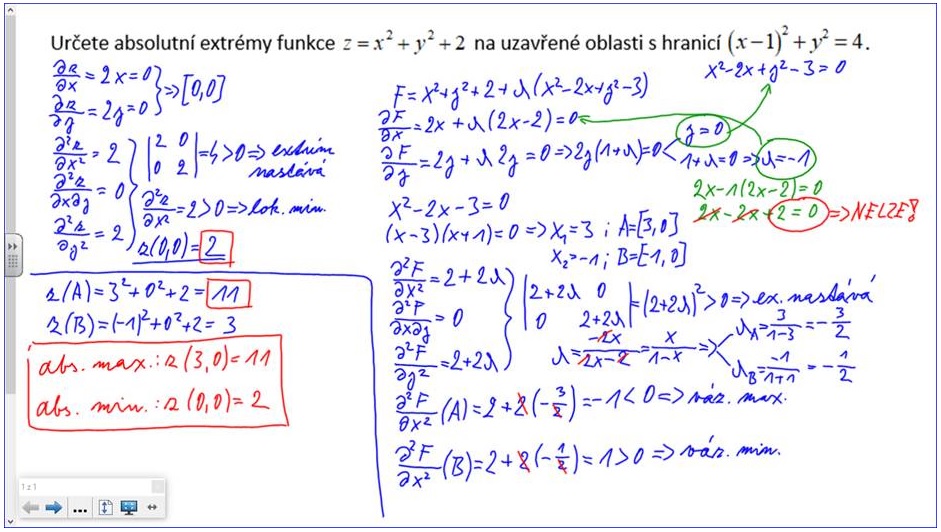 Určete absolutní extrémy funkce z = x² + y² + 2 na uzavřené oblasti s hranicí (x−1)² + y² = 4.
x²−2x+y²−3=0
∂z/∂x = 2x = 0
∂z/∂y = 2y = 0
⇒ [0,0]
∂²z/∂x² = 2
∂²z/∂x∂y = 0
∂²z/∂y² = 2
|2 0|
|0 2|
= 4 > 0 ⇒ extrém
nastává
∂²z/∂x² = 2 > 0 ⇒ lok. min.
z(0,0) = 2
z(A) = 3² + 0² + 2 = 11
z(B) = (−1)² + 0² + 2 = 3
abs. max.: z(3,0) = 11
abs. min.: z(0,0) = 2
F = x² + y² + 2 + λ(x²−2x+y²−3)
∂F/∂x = 2x + λ(2x−2) = 0
∂F/∂y = 2y + λ2y = 0 ⇒ 2y(1+λ) = 0
y = 0
1+λ = 0 ⇒ λ = −1
2x−1(2x−2) = 0
2x − 2x + 2 = 0 ⇒ NELZE!
x² − 2x − 3 = 0
(x−3)(x+1) = 0 ⇒ x₁ = 3 ; A = [3,0]
x₂ = −1 ; B = [−1,0]
∂²F/∂x² = 2 + 2λ
∂²F/∂x∂y = 0
∂²F/∂y² = 2 + 2λ
|2+2λ 0|
|0 2+2λ|
= (2+2λ)² > 0 ⇒ ex. nastává
λ = −2x/(2x−2) = x/(1−x) ⇒
λ_A = 3/(1−3) = −3/2
λ_B = −1/(1+1) = −1/2
∂²F/∂x² (A) = 2 + 2(−3/2) = −1 < 0 ⇒ váz. max.
∂²F/∂x² (B) = 2 + 2(−1/2) = 1 > 0 ⇒ váz. min.
1 z 1